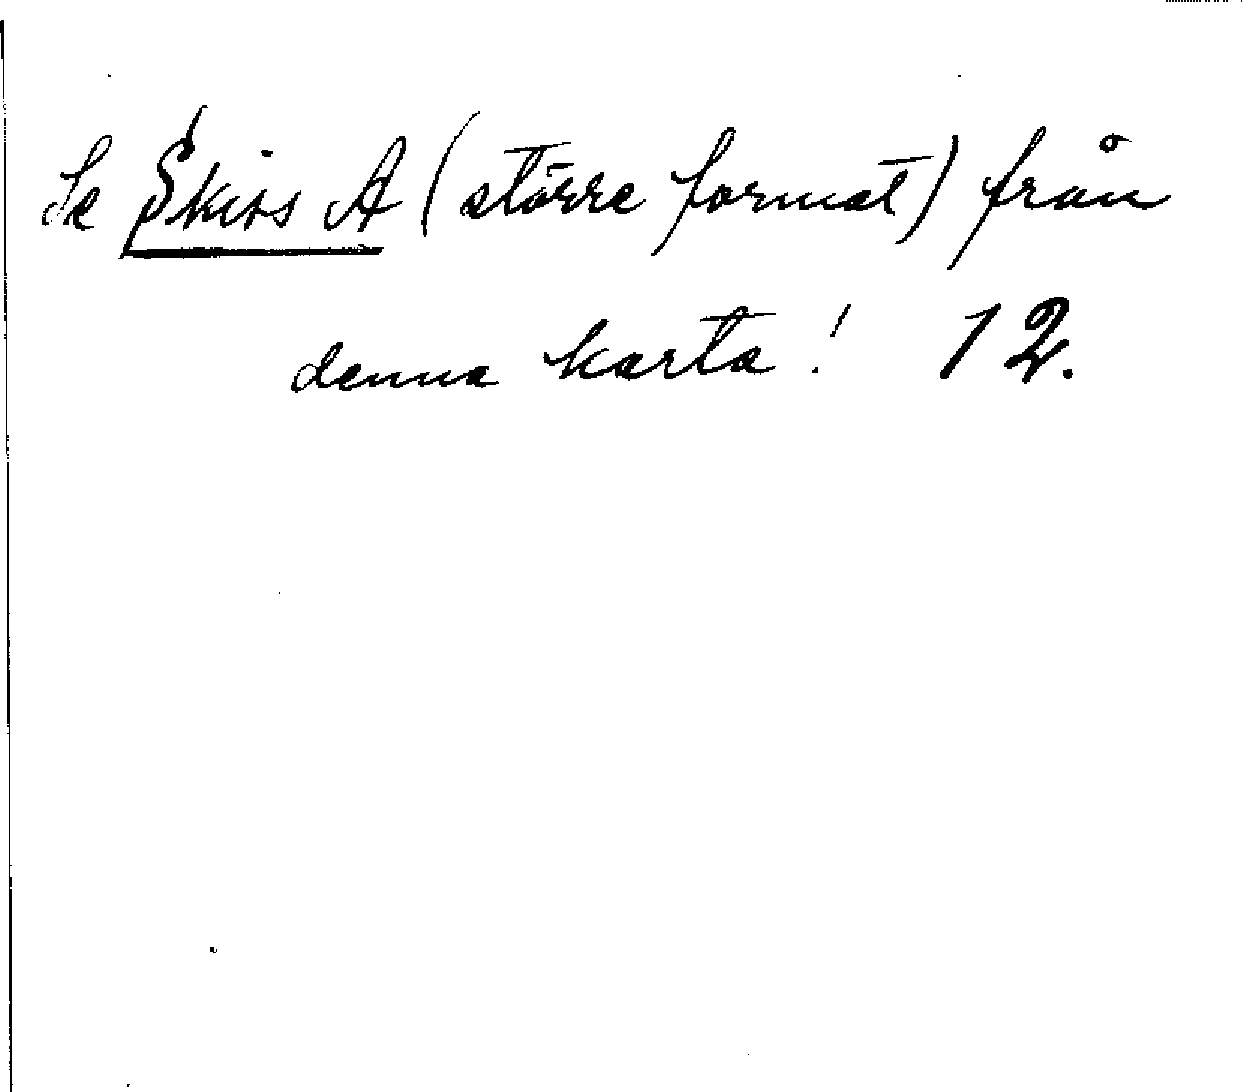 Se Skiss A (större format) från
denna karta! 12.